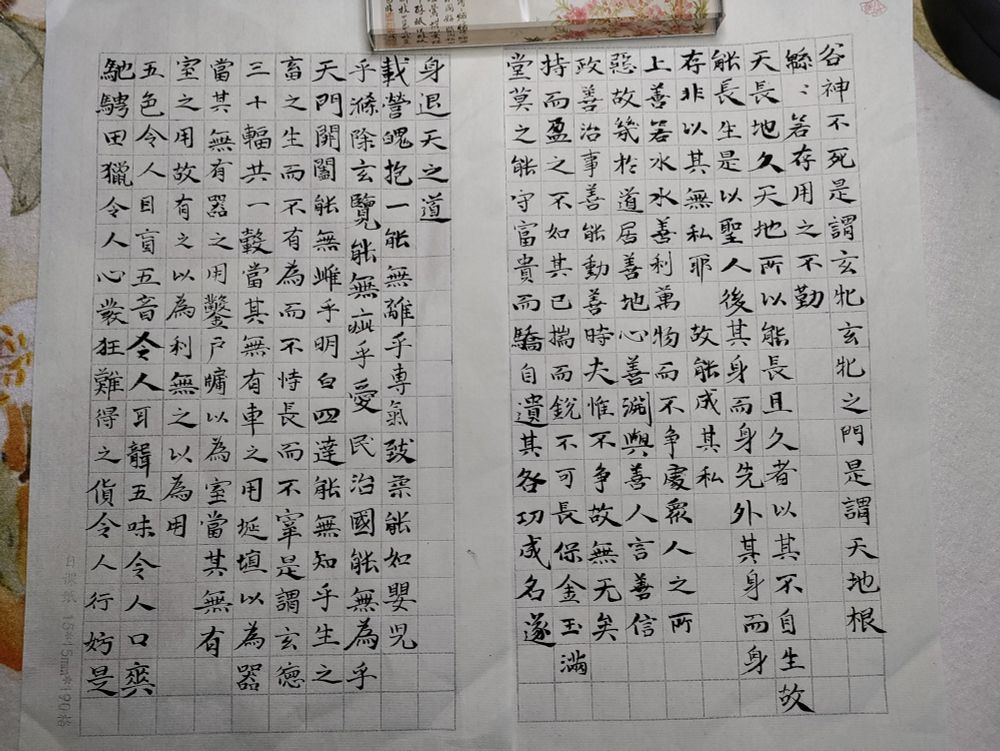 谷神不死是謂玄牝玄牝之門是謂天地根
緜〻若存用之不勤
天長地久天地所以能長且久者以其不自生故
能長生是以聖人後其身而身先外其身而身
存非以其無私耶故能成其私
上善若水水善利萬物而不争處衆人之所
惡故幾於道居善地心善淵與善人言善信
政善治事善能動善時夫惟不争故無尤矣
持而盈之不如其已揣而銳不可長保金玉滿
堂莫之能守富貴而驕自遺其咎功成名遂
身退天之道
載營魄抱一能無離乎專氣致柔能如嬰児
乎滌除玄覽能無疵乎愛民治國能無為乎
天門開闔能無雌乎明白四達能無知乎生之
畜之生而不有為而不恃長而不宰是謂玄德
三十輻共一轂當其無有車之用埏埴以為器
當其無有器之用鑿戶牖以為室當其無有
室之用故有之以為利無之以為用
五色令人目盲五音令人耳聾五味令人口爽
馳騁田獵令人心發狂難得之貨令人行妨是
日课纸 15*15mm*190格